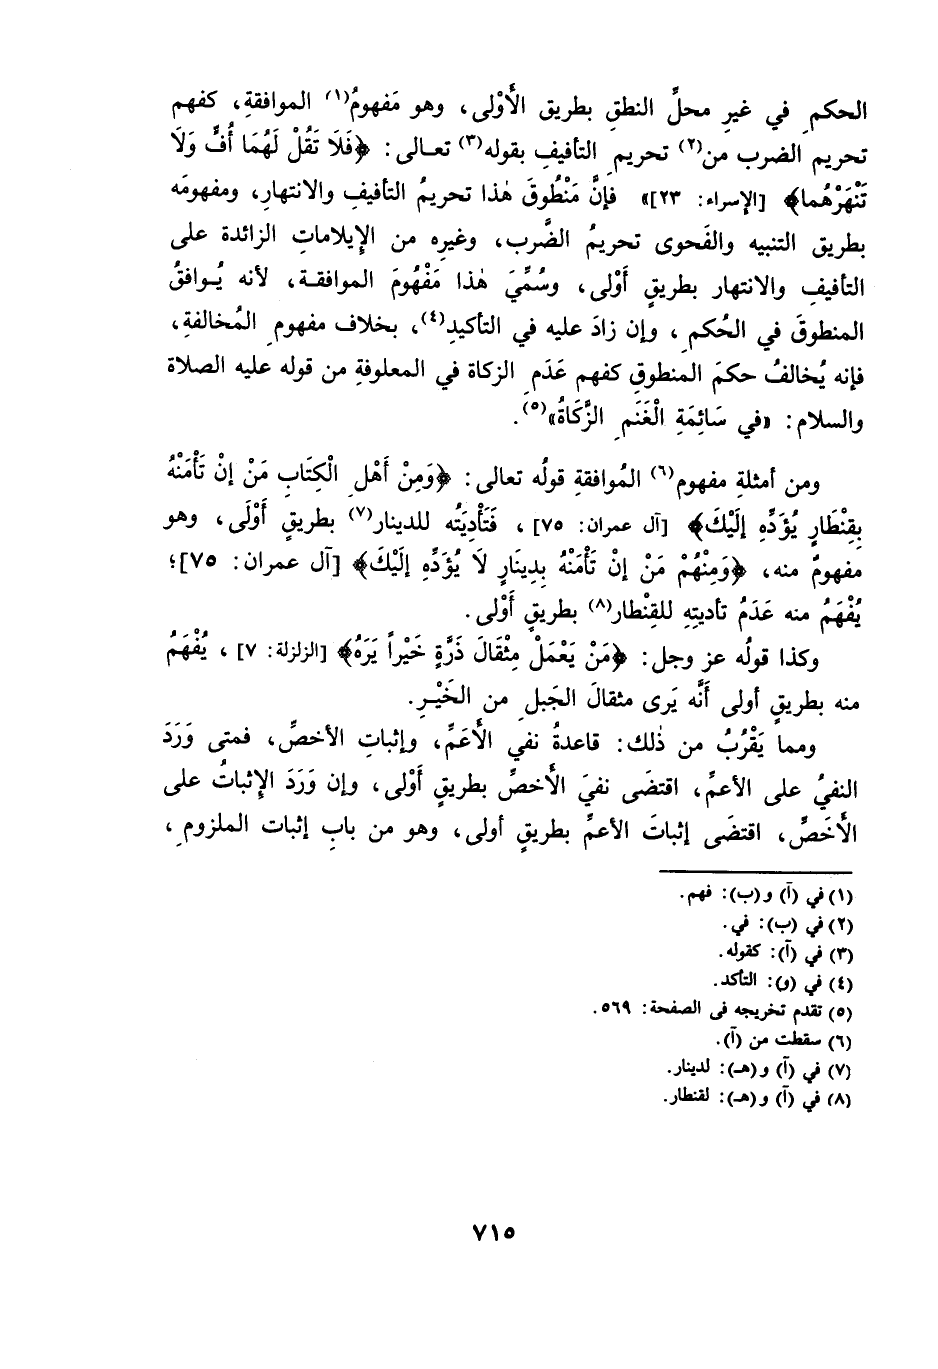 الحكمِ في غيرِ محلِّ النطقِ بطريق الأَوْلى، وهو مَفهومُ(١) الموافقةِ، كفهم
تحريم الضرب من(٢) تحريمِ التأفيفِ بقوله(٣) تعالى: ﴿فَلَا تَقُلْ لَهُمَا أُفٍّ وَلَا
تَنْهَرْهُما﴾ [الإسراء: ٢٣]» فإنَّ مَنْطُوقَ هٰذا تحريمُ التأفيفِ والانتهارِ، ومفهومَه
بطريق التنبيه والفَحوى تحريمُ الضَّرب، وغيرِه من الإيلاماتِ الزائدة على
التأفيفِ والانتهار بطريقٍ أَوْلى، وسُمِّيَ هٰذا مَفْهُومَ الموافقة، لأنه يُوافقُ
المنطوقَ في الحُكمِ، وإن زادَ عليه في التأكيدِ(٤)، بخلاف مفهومِ المُخالفةِ،
فإنه يُخالفُ حكمَ المنطوقِ كفهم عَدَمِ الزكاة في المعلوفةِ من قوله عليه الصلاة
والسلام: «في سَائِمَةِ الْغَنَمِ الزَّكَاةُ»(٥).
ومن أمثلةِ مفهوم(٦) المُوافقةِ قولُه تعالى: ﴿وَمِنْ أَهْلِ الْكِتَابِ مَنْ إنْ تَأْمَنْهُ
بِقِنْطَارٍ يُؤَدِّهِ إلَيْكَ﴾ [آل عمران: ٧٥]، فَتَأْدِيَتُه للدينار(٧) بطريقٍ أَوْلَى، وهو
مفهومٌ منه، ﴿وَمِنْهُمْ مَنْ إنْ تَأْمَنْهُ بِدِينَارٍ لَا يُؤَدِّهِ إلَيْكَ﴾ [آل عمران: ٧٥]؛
يُفْهَمُ منه عَدَمُ تأديتِهِ للقِنْطار(٨) بطريقٍ أَوْلى.
وكذا قولُه عز وجل: ﴿مَنْ يَعْمَلْ مِثْقَالَ ذَرَّةٍ خَيْراً يَرَهُ﴾ [الزلزلة: ٧]، يُفْهَمُ
منه بطريقٍ أولى أَنَّه يَرى مثقالَ الجَبلِ من الخَيْرِ.
ومما يَقْرُبُ من ذٰلك: قاعدةُ نفي الأَعَمِّ، وإثباتِ الأخصِّ، فمتى وَرَدَ
النفيُ على الأعمِّ، اقتضى نفيَ الأَخصِّ بطريقٍ أَوْلى، وإن وَرَدَ الإِثباتُ على
الأَخَصِّ، اقتضى إثباتَ الأعمِّ بطريقٍ أولى، وهو من بابِ إثبات الملزومِ،
(١) في (آ) و(ب): فهم.
(٢) في (ب): في.
(٣) في (آ): كقوله.
(٤) في (و): التأكد.
(٥) تقدم تخريجه في الصفحة: ٥٦٩.
(٦) سقطت من (آ).
(٧) في (آ) و(هـ): لدينار.
(٨) في (آ) و(هـ): لقنطار.
٧١٥